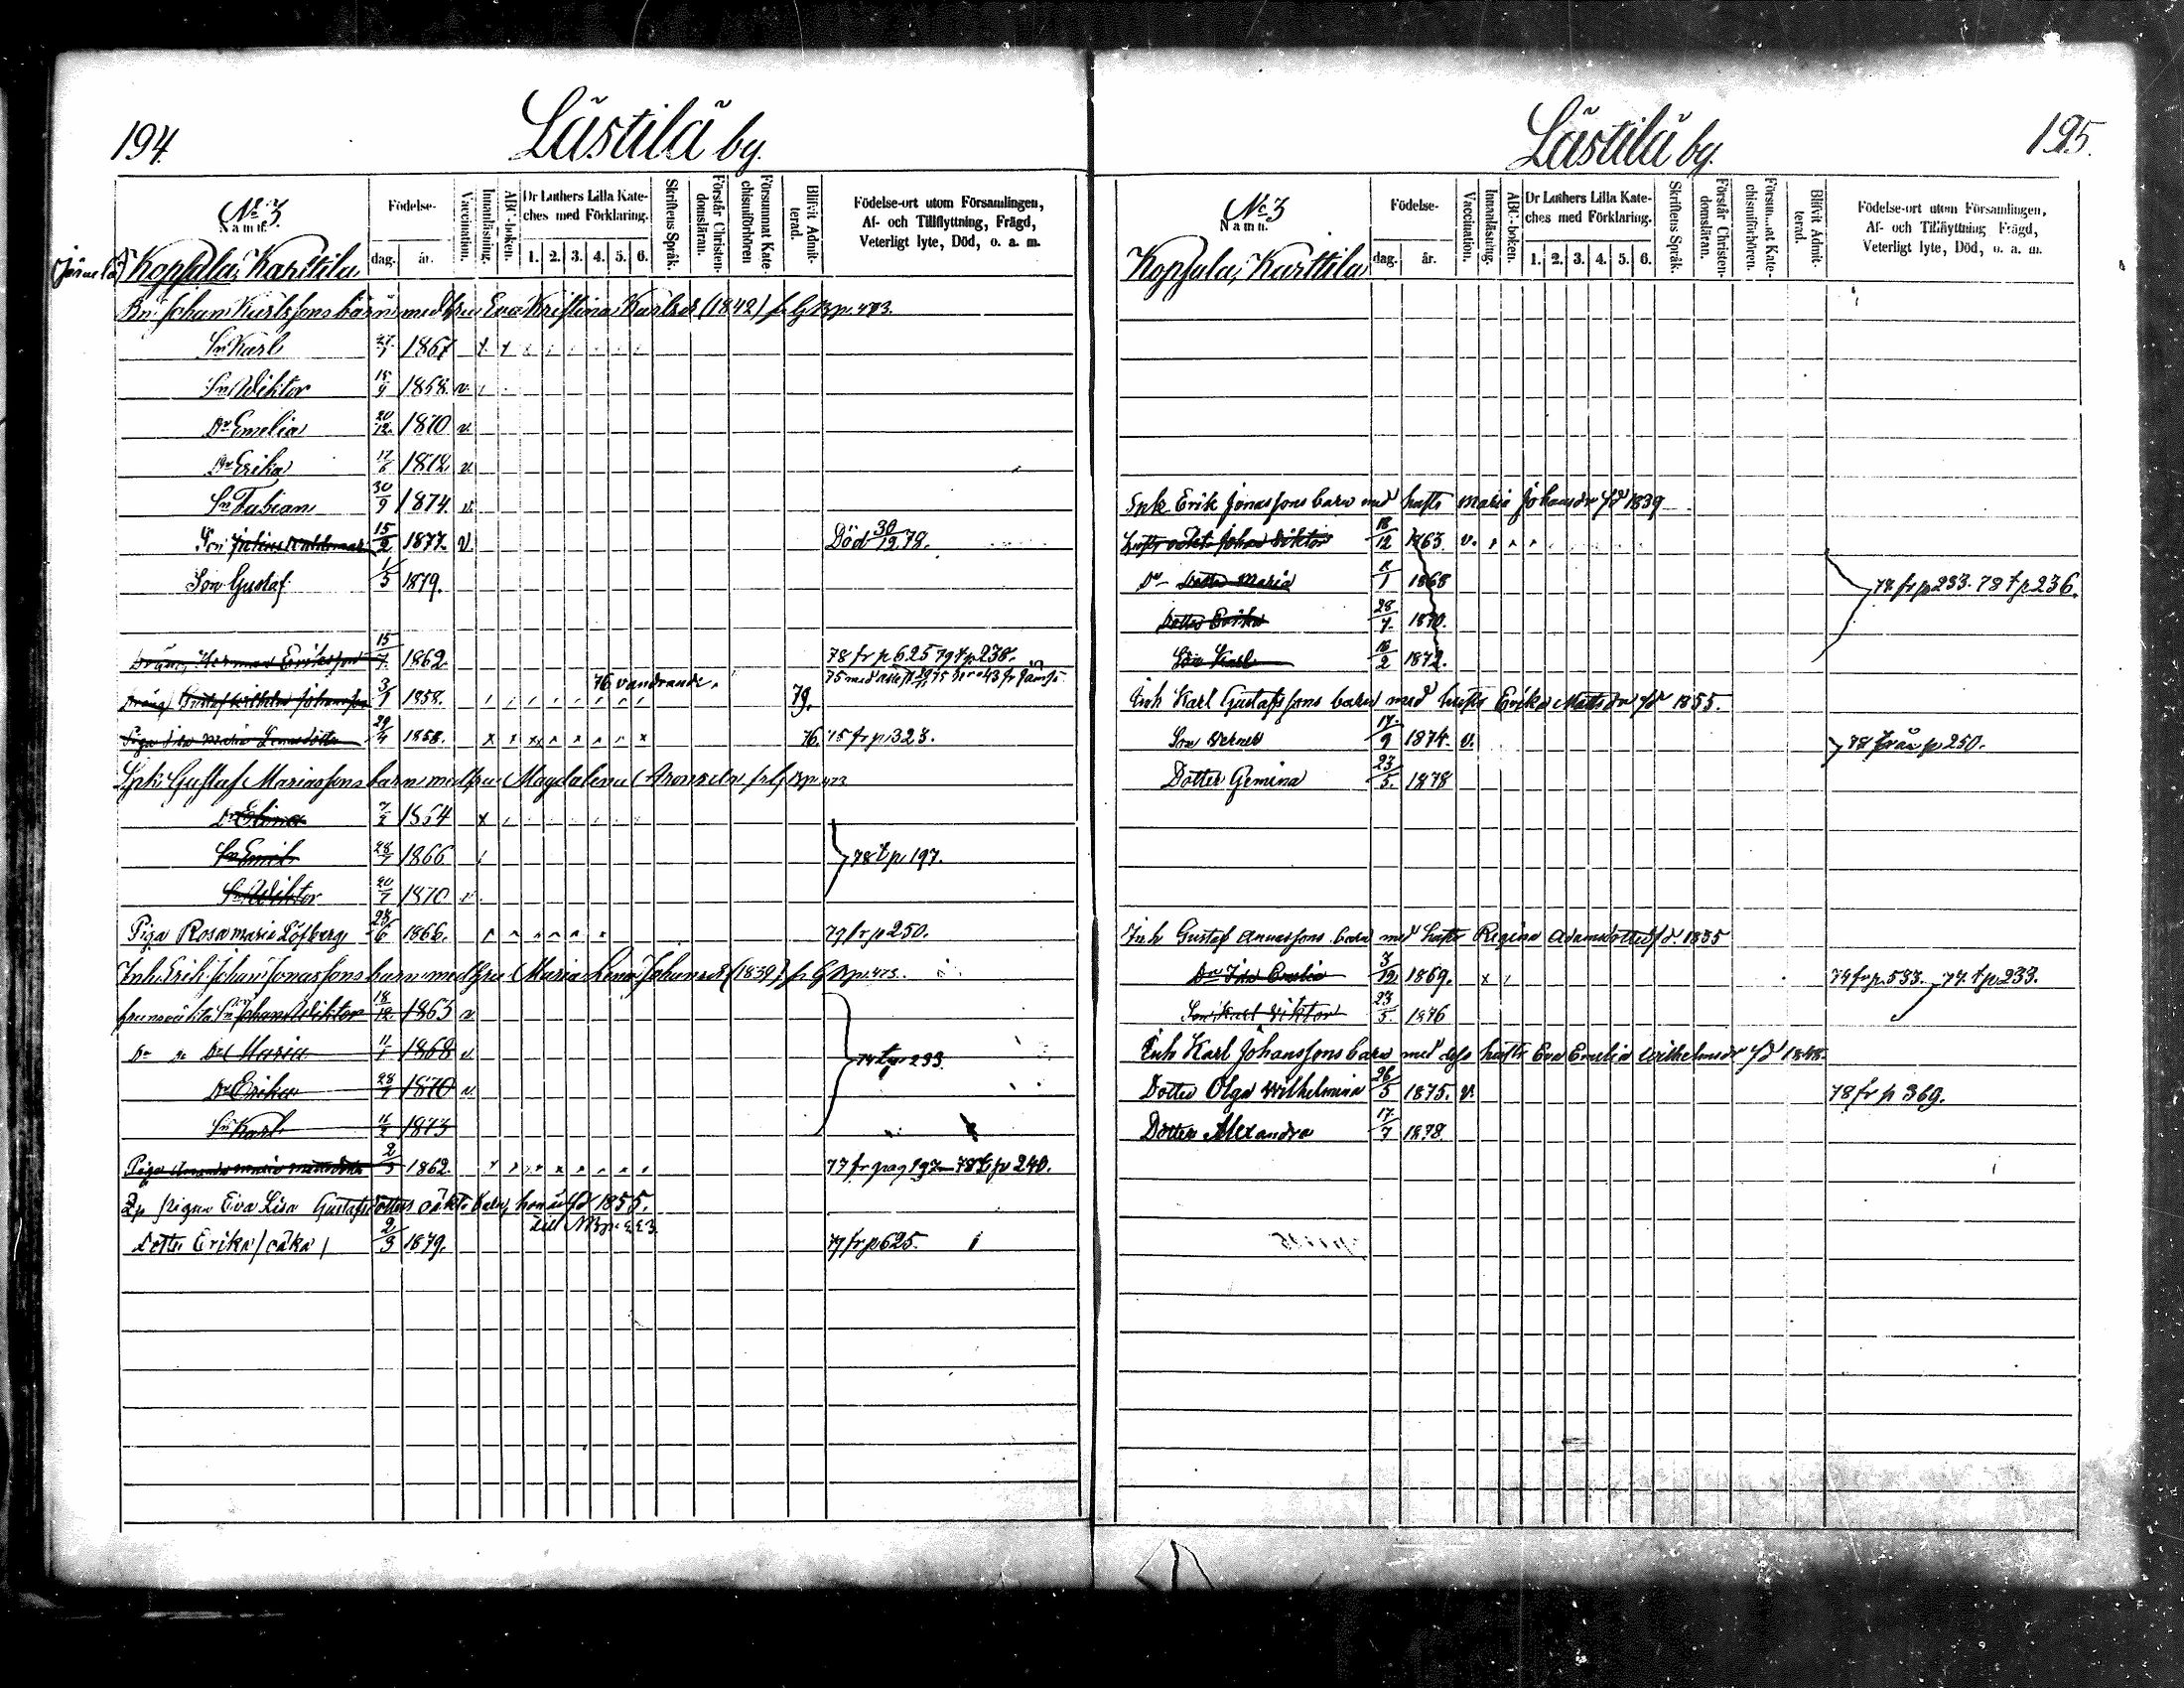 194.
Lästilä by.
No 3
Namn.
Födelse-
dag.
år.
Vaccination.
Innanläsning.
ABC-boken.
Dr Luthers Lilla Kate-
ches med Förklaring.
1. 2. 3. 4. 5. 6.
Skriftens Språk.
Förstår Christen-
domsläran.
Försummat Kate-
chismiförhören
Blifvit Admit-
terad.
Födelse-ort utom Församlingen,
Af- och Tillflyttning, Frägd,
Veterligt lyte, Död, o. a. m.
Kopsala, Karttila
Johan Karlssons barn med hru Eva Kristina Karlsd (1842) fr G Bp. 473.
Sn Karl 1867
Sn Wiktor 15/9 1868 v.
Dr Emelia 20/12 1870 v.
Dr Erika 17/6 1872 v.
Sn Fabian 30/9 1874 v.
Son Julius Waldemar 15/2 1877 v. Död 30/12 78.
Son Gustaf 1/5 1879.
Dräng Herman Eriksson 15/7 1862. 78 fr p 625 79 t p 238.
Dräng Gustaf Wilhelm Johansson 3/1 1858. 76 vandrande. 79.
Piga Ida Maria 29/4 1858. 76. 75 fr p. 323.
Gustaf Mariassons barn med hru Magdalena Aronsdr
Dr Elina 7/2 1864
Sn Emil 28/7 1866 78 t p. 197.
Sn Wiktor 20/7 1870 v.
Piga Rosa Maria Löfberg 28/6 1866. 79 fr p 250.
Inh. Erik Johan Jonassons barn med hru Maria Lena Johansd (1839) fr G Bp. 473.
Sn Johan Wiktor 18/12 1863 v
Dr Maria 11/1 1868 v 74 t p 233.
Dr Erika 28/7 1870 v.
Sn Karl 1873
Piga Amanda Maria 2/3 1862. 77 fr pag 197 78 t p 240.
Eva Lisa Gustafsdotters oäkta barn, hon är fd 1855.
Dotter Erika (oäkta) 2/3 1879. 79 fr p 625.
195.
Lästilä by.
No 3
Namn.
Födelse-
dag.
år.
Vaccination.
Innanläsning.
ABC-boken.
Dr Luthers Lilla Kate-
ches med Förklaring.
1. 2. 3. 4. 5. 6.
Skriftens Språk.
Förstår Christen-
domsläran.
Försummat Kate-
chismiförhören.
Blifvit Admit-
terad.
Födelse-ort utom Församlingen,
Af- och Tillflyttning Frägd,
Veterligt lyte, Död, o. a. m.
Kopsala, Karttila
Erik Jonassons barn med hustr Maria Johansdr fd 1839
Johan Viktor 18/12 1863. v.
Dr Dotter Maria 1868 78 fr p 233. 78 t p 236.
Dotter Erika 28/7. 1870.
Son Karl 1872.
Inh Karl Gustafssons barn med hustr Erika Mattsdr fd 1855.
Son Verner 17/9 1874. v. 78 från p 250.
Dotter Gemina 23/5. 1878
Inh Gustaf Annassons barn med hustr Regina Adamsdotter fd. 1835
Dr Ida Emelia 3/12 1869. 74 fr p. 533. 74. t p 233.
Son Karl Viktor 23/5. 1876
Inh Karl Johanssons barn med dess hustr Eva Emelia Wilhelmsdr fd 1848.
Dotter Olga Wilhelmina 26/5 1875. v. 78 fr p 369.
Dotter Alexandra 17/7 1878.